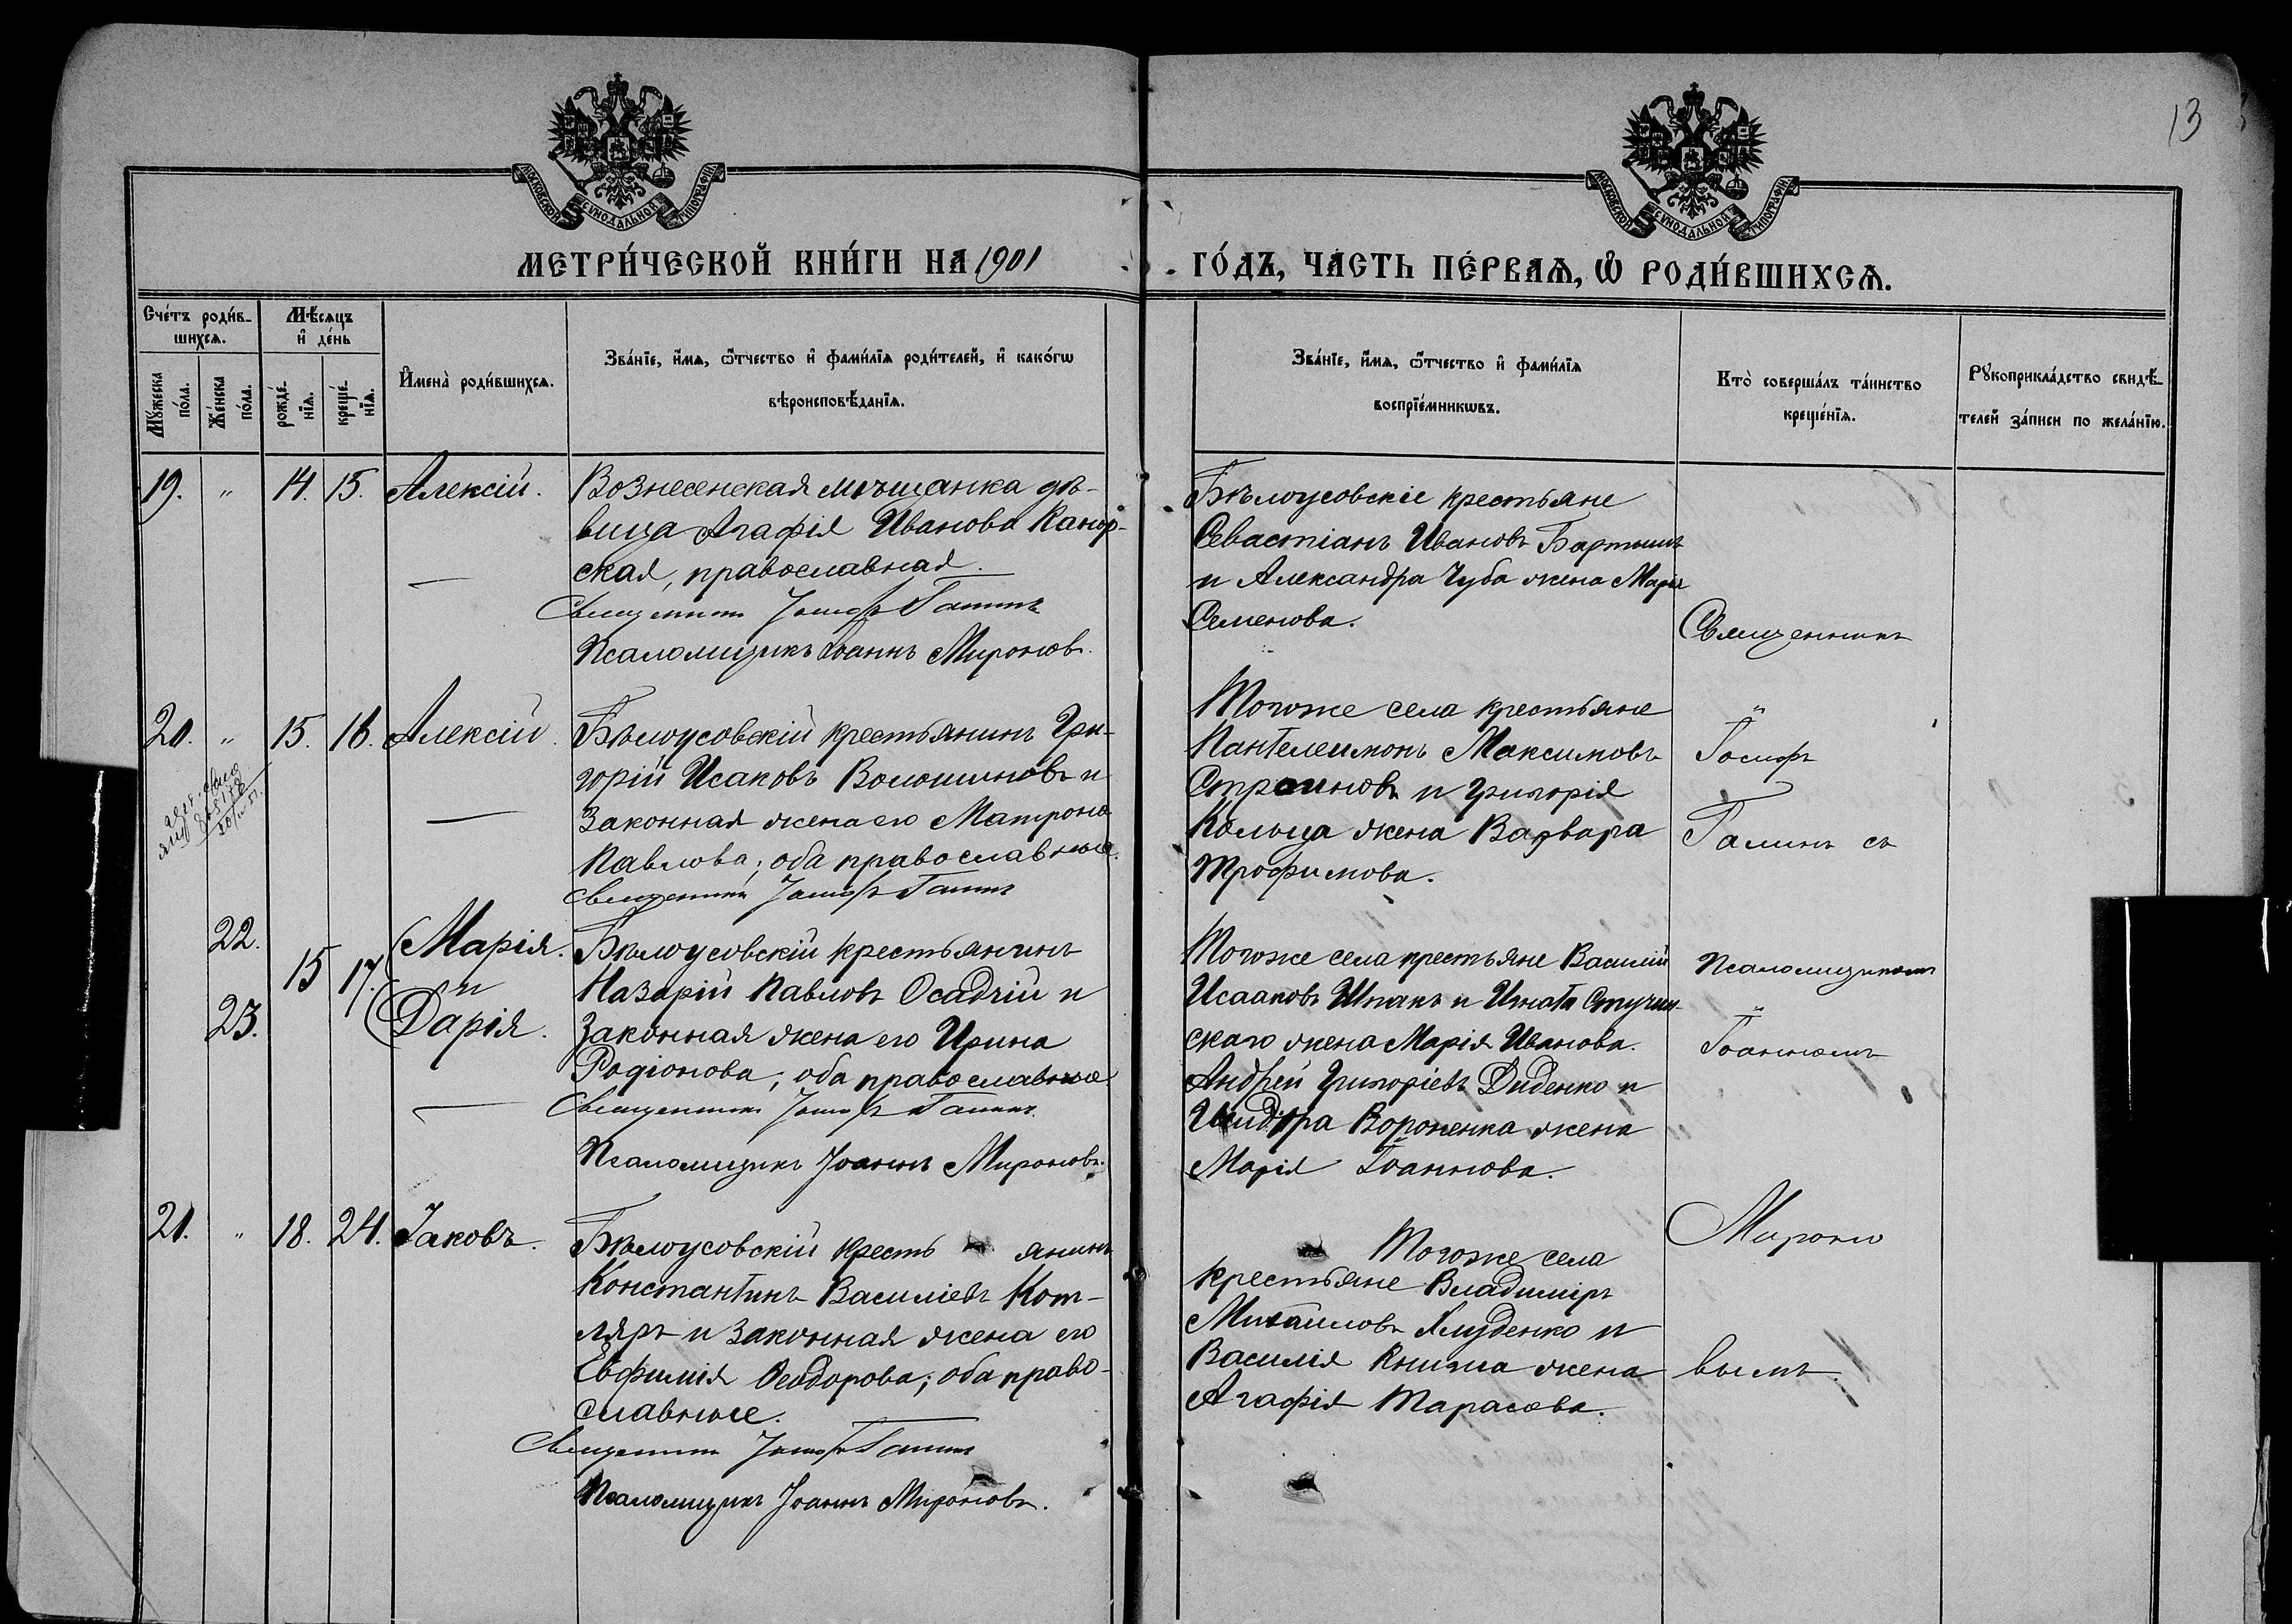 13
МОСКОВСКОЙ СѴНОДАЛЬНОЙ ТИПОГРАФІИ
МОСКОВСКОЙ СѴНОДАЛЬНОЙ ТИПОГРАФІИ
МЕТРИ́ЧЕСКОЙ КНИ́ГИ НА 1901
ГО́ДЪ, ЧА́СТЬ ПЕ́РВАѦ, Ѡ҆ РОДИ́ВШИХСѦ.
Сче́тъ роди́в-
шихсѧ.
Мѣ́сѧцъ
и҆ де́нь
Мꙋ́жеска
по́ла.
Же́нска
по́ла.
рожде́-
нїѧ.
креще́-
нїѧ.
И҆мена̀ роди́вшихсѧ.
Зва́нїе, и҆́мѧ, ѻ҆́тчество и҆ фами́лїѧ роди́телей, и҆ како́гѡ
вѣроисповѣ́данїѧ.
Зва́нїе, и҆́мѧ, ѻ҆́тчество и҆ фами́лїѧ
воспрїе́мникѡвъ.
Кто̀ соверша́лъ та́инство
креще́нїѧ.
Рꙋкоприкла́дство свидѣ́-
телей за́писи по жела́нїю.
19. " 14. 15. Алексій.
Вознесенская мѣщанка дѣ-
вица Агафія Иванова
ская, православная.
Священникъ Іосифъ Галинъ
Псаломщикъ Іоаннъ Мироновъ.
Бѣлоусовскіе крестьяне
Севастіанъ Ивановъ
и Александра Чуба жена Марія
Семенова.
Священникъ
20. " 15. 16. Алексій.
Бѣлоусовскій крестьянинъ Гри-
горій Исаковъ Волошиновъ и
законная жена его Матрона
Павлова; оба православные.
Священникъ Іосифъ Галинъ
Тогоже села крестьяне
Пантелеимонъ Максимовъ
Строиновъ и Григорія
Кольца жена Варвара
Трофимова.
Іосифъ
Галинъ съ
22. 15 17. Марія.
и
23. Дарія.
Бѣлоусовскій крестьянинъ
Назарій Павловъ Осадчій и
законная жена его Ирина
Родіонова; оба православные.
Священникъ Іосифъ Галинъ.
Псаломщикъ Іоаннъ Мироновъ.
Тогоже села крестьяне Василій
Исааковъ Шпакъ и Игната
скаго жена Марія Иванова.
Андрей Григоріевъ Диденко и
Вороненка жена
Марія Іоаннова.
Псаломщикомъ
Іоанномъ
21. " 18. 24. Іаковъ.
Бѣлоусовскій кресть янинъ
Константинъ Василіевъ Кот-
ляръ и законная жена его
Евфимія Ѳеодорова; оба право-
славные.
Священникъ Іосифъ Галинъ
Псаломщикъ Іоаннъ Мироновъ.
Тогоже села
крестьяне Владиміръ
Михаиловъ и
Василія жена
Агафія Тарасова.
Мироно
вымъ.